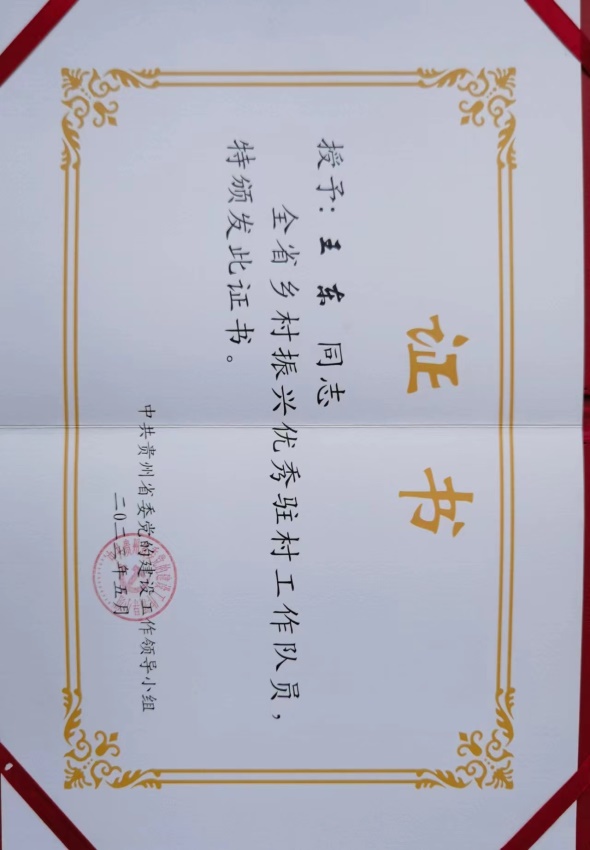 证书
授予：王东同志
全省乡村振兴优秀驻村工作队员，
特颁发此证书。
中共贵州省委党的建设工作领导小组
二〇二三年五月